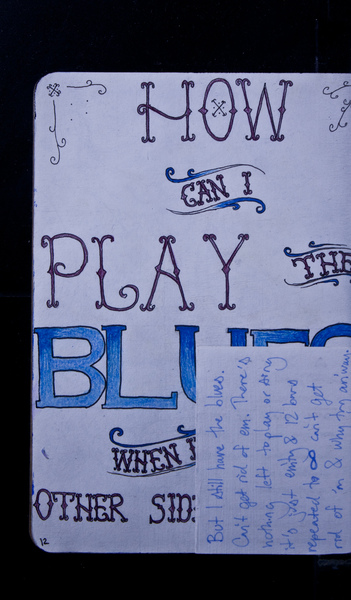 HOW
CAN I
PLAY THE
BLUES
WHEN
OTHER SID
12
But I still have the blues.
Can't get rid of em. There's
nothing left to play or sing
it's just empty & 12 bars
repeated to ∞ can't get
rid of 'm & why try anyway.